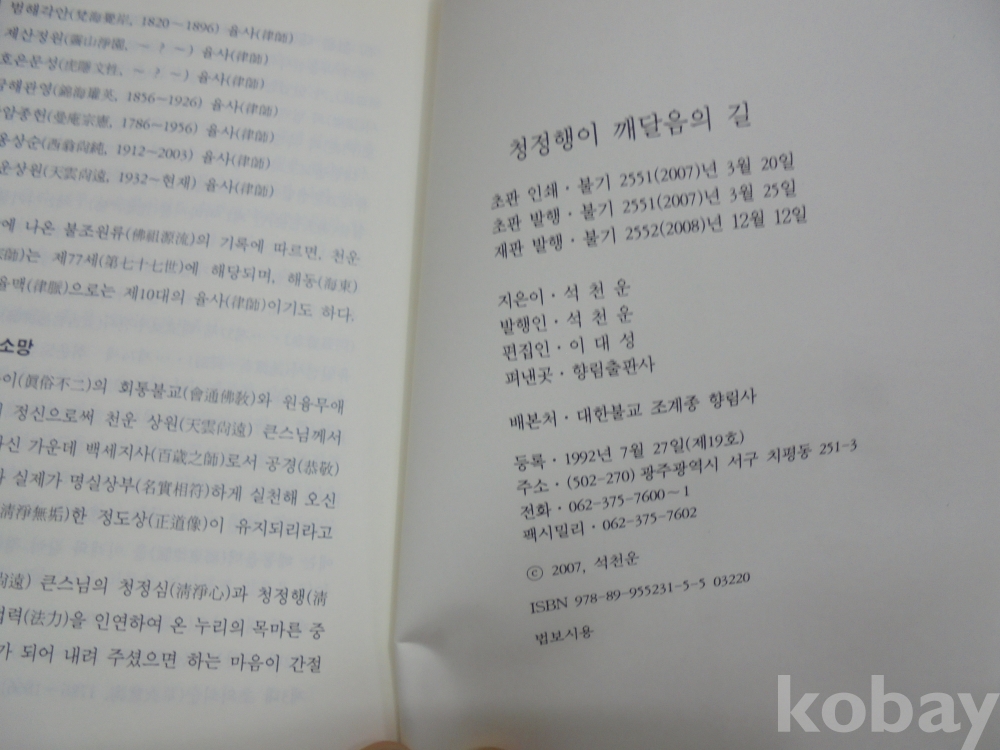 범해각안(梵海覺岸, 1820~1896) 율사(律師)
제산정원(霽山淨圓, ~ ? ~) 율사(律師)
호은문성(虎隱文性, ~ ? ~) 율사(律師)
금해관영(錦海瓘英, 1856~1926) 율사(律師)
암종헌(曼庵宗憲, 1786~1956) 율사(律師)
옹상순(西翁尙純, 1912~2003) 율사(律師)
운상원(天雲尙遠, 1932~현재) 율사(律師)
에 나온 불조원류(佛祖源流)의 기록에 따르면, 천운
師)는 제77세(第七十七世)에 해당되며, 해동(海東)
율맥(律脈)으로는 제10대의 율사(律師)이기도 하다.
소망
이(眞俗不二)의 회통불교(會通佛敎)와 원융무애
정신으로써 천운 상원(天雲尙遠) 큰스님께서
신 가운데 백세지사(百歲之師)로서 공경(恭敬)
실제가 명실상부(名實相符)하게 실천해 오신
淸淨無垢)한 정도상(正道像)이 유지되리라고
尙遠) 큰스님의 청정심(淸淨心)과 청정행(淸
력(法力)을 인연하여 온 누리의 목마른 중
가 되어 내려 주셨으면 하는 마음이 간절
청정행이 깨달음의 길
초판 인쇄 · 불기 2551(2007)년 3월 20일
초판 발행 · 불기 2551(2007)년 3월 25일
재판 발행 · 불기 2552(2008)년 12월 12일
지은이 · 석 천 운
발행인 · 석 천 운
편집인 · 이 대 성
펴낸곳 · 향림출판사
배본처 · 대한불교 조계종 향림사
등록 · 1992년 7월 27일(제19호)
주소 · (502-270) 광주광역시 서구 치평동 251-3
전화 · 062-375-7600~1
팩시밀리 · 062-375-7602
ⓒ 2007, 석천운
ISBN 978-89-955231-5-5 03220
법보시용
kobay